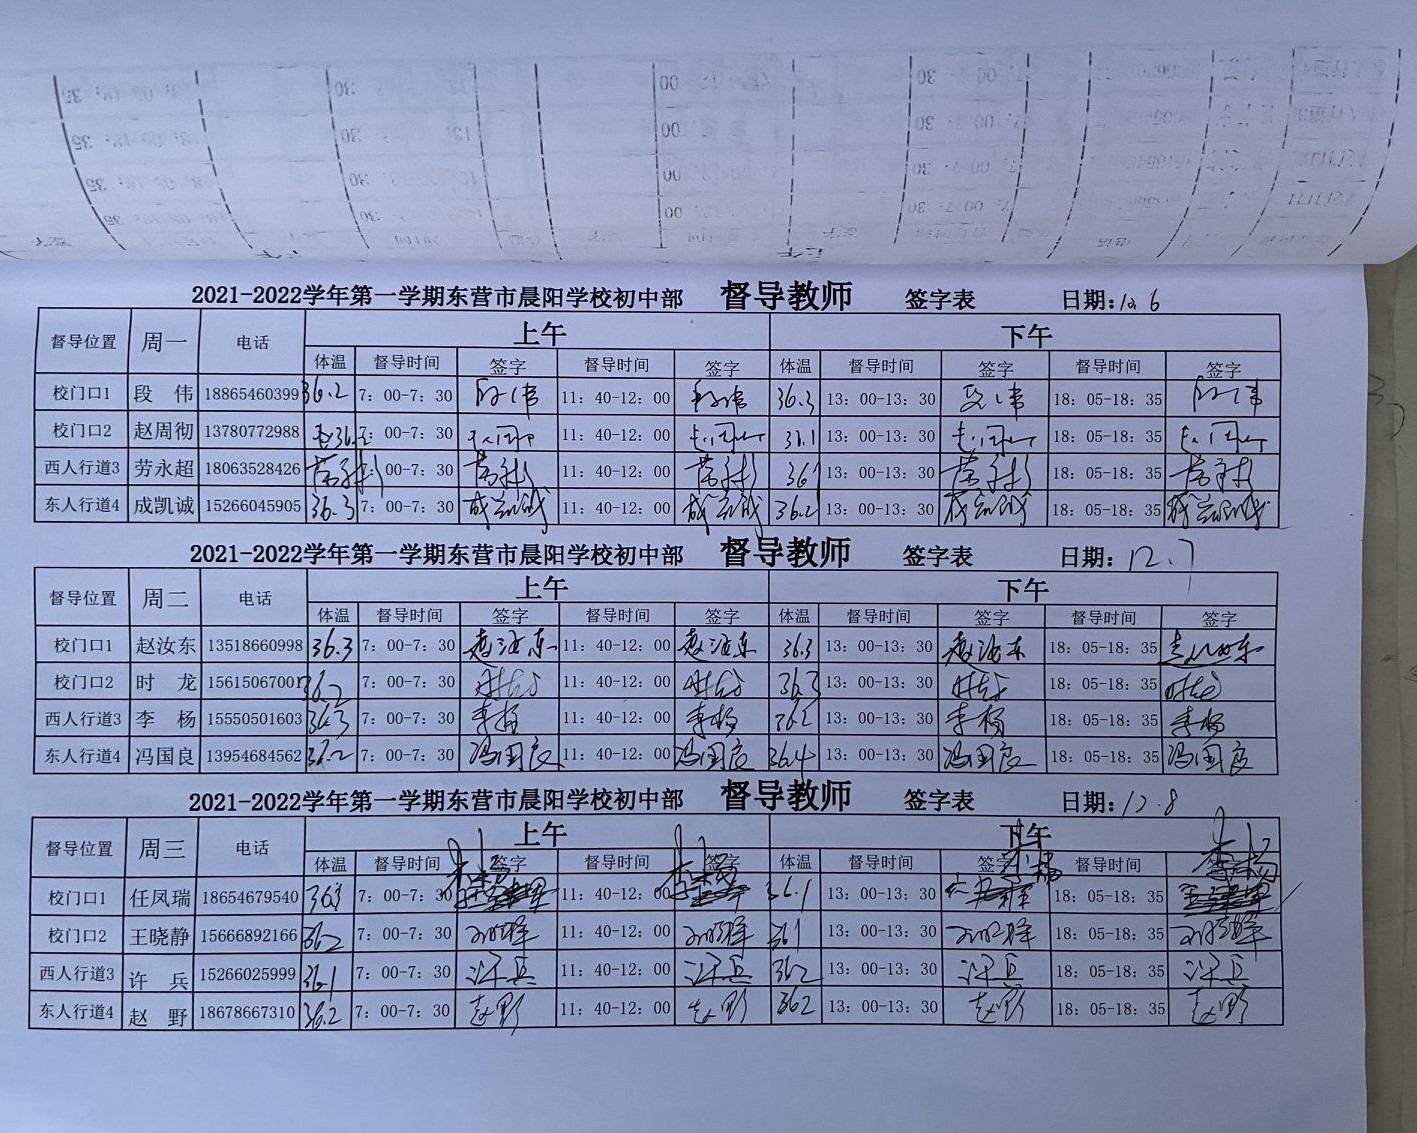 2021-2022学年第一学期东营市晨阳学校初中部 督导教师 签字表 日期:12.6
督导位置 周一 电话 上午 下午
体温 督导时间 签字 督导时间 签字 体温 督导时间 签字 督导时间 签字
校门口1 段 伟 18865460399 36.2 7:00-7:30 段伟 11:40-12:00 段伟 36.3 13:00-13:30 段伟 18:05-18:35 段伟
校门口2 赵周彻 13780772988 7:00-7:30 11:40-12:00 13:00-13:30 18:05-18:35
西人行道3 劳永超 18063528426 :00-7:30 11:40-12:00 13:00-13:30 18:05-18:35
东人行道4 成凯诚 15266045905 36.3 7:00-7:30 成凯诚 11:40-12:00 成凯诚 36.2 13:00-13:30 成凯诚 18:05-18:35 成凯诚
2021-2022学年第一学期东营市晨阳学校初中部 督导教师 签字表 日期:12.7
督导位置 周二 电话 上午 下午
体温 督导时间 签字 督导时间 签字 体温 督导时间 签字 督导时间 签字
校门口1 赵汝东 13518660998 36.3 7:00-7:30 赵汝东 11:40-12:00 赵汝东 36.3 13:00-13:30 赵汝东 18:05-18:35 赵汝东
校门口2 时 龙 15615067001 36.2 7:00-7:30 时龙 11:40-12:00 时龙 36.3 13:00-13:30 时龙 18:05-18:35 时龙
西人行道3 李 杨 15550501603 36.3 7:00-7:30 李杨 11:40-12:00 李杨 36.2 13:00-13:30 李杨 18:05-18:35 李杨
东人行道4 冯国良 13954684562 36.2 7:00-7:30 冯国良 11:40-12:00 冯国良 36.4 13:00-13:30 冯国良 18:05-18:35 冯国良
2021-2022学年第一学期东营市晨阳学校初中部 督导教师 签字表 日期:12.8
督导位置 周三 电话 上午 下午
体温 督导时间 签字 督导时间 签字 体温 督导时间 签字 督导时间 签字
校门口1 任凤瑞 18654679540 7:00-7:30 李杨 11:40-12:00 李杨 36.1 13:00-13:30 李杨 18:05-18:35 李杨
校门口2 王晓静 15666892166 36.2 7:00-7:30 11:40-12:00 36.1 13:00-13:30 18:05-18:35
西人行道3 许 兵 15266025999 36.1 7:00-7:30 许兵 11:40-12:00 许兵 36.2 13:00-13:30 许兵 18:05-18:35 许兵
东人行道4 赵 野 18678667310 36.2 7:00-7:30 赵野 11:40-12:00 赵野 36.2 13:00-13:30 赵野 18:05-18:35 赵野